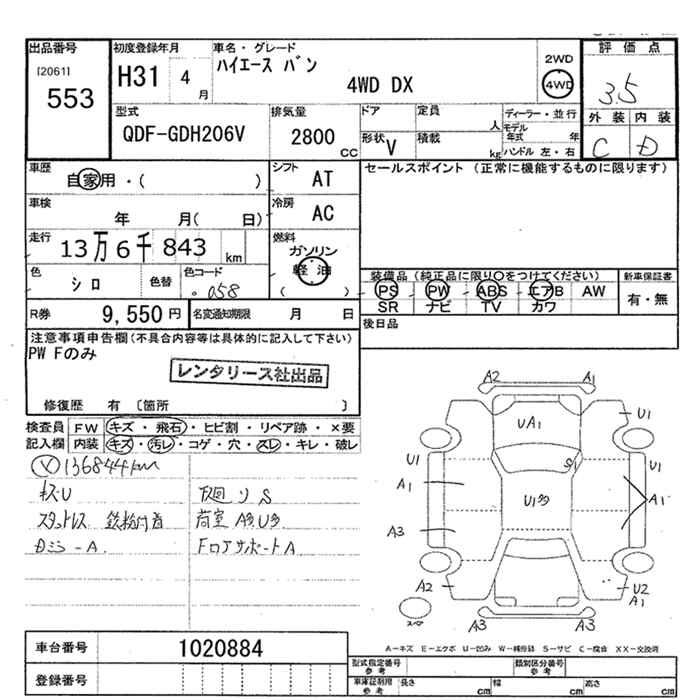 出品番号 初度登録年月 車名・グレード 評価点
[2061] 553 H31 4月 ハイエース バン 4WD DX 2WD 4WD 3.5
型式 排気量 ドア 定員 人 ディーラー・並行 外装 内装
QDF-GDH206V 2800 CC 形状 V 積載 kg モデル年式 年 ハンドル 左・右 C D
車歴 シフト セールスポイント (正常に機能するものに限ります)
自家用・( ) AT
車検 冷房
年 月( 日) AC
走行 燃料
13万6千843 km ガソリン 軽油 ( )
色 シロ 色替 色コード 058
装備品(純正品に限り○をつけてください) 新車保証書
PS PW ABS エアB AW 有・無
SR ナビ TV カワ
R券 9,550円 名変通知期限 月 日 後日品
注意事項申告欄(不具合内容等は具体的に記入して下さい)
PW Fのみ
レンタリース社出品
修復歴 有 〔箇所 〕
検査員 FW キズ・飛石・ヒビ割・リペア跡・×要
記入欄 内装 キズ・汚レ・コゲ・穴・スレ・キレ・破レ
136844km
キズU 下廻リ S
スタットレス 鉄粉付着 荷室 A多U多
Dミラ-A フロアサポートA
A2 A1
UA1 U1
U1 S1 U1
A1 U1多 A1
A3
A2 U2
A1
スペア A3 A3
A-キズ E-エクボ U-凹み W-補修跡 S-サビ C-腐食 XX-交換済
車台番号 1020884 型式指定番号 参考 類別区分番号 参考
登録番号 車庫証明用 参考 長さ cm 幅 cm 高さ cm